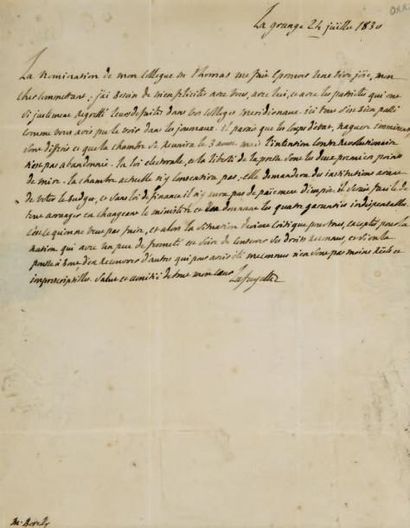 La grange 24 juillet 1830
La nomination de mon collègue M Thomas me fait éprouver une vive joie, mon
cher commettant; j'ai besoin de m'en féliciter avec vous, avec lui, et avec les patriotes qui ont
si justement regretté leurs députés dans vos collèges méridionaux. ici tout s'est bien passé
comme vous avés pu le voir dans les journaux. il parait que les coups d'état, naguères
sont différés et que la chambre se réunira le 3 aoust mais l'intention contre révolutionnaire
n'est pas abandonnée. la loi électorale, et la liberté de la presse sont les deux premiers points
de mire. la chambre actuelle n'y consentira pas, elle demandera des institutions avant
de voter le budget, et sans loi de finance il n'y aura pas de paiement d'impôt. il serait facile de
tout arranger en changeant le ministère et en donnant les quatre garanties indispensables
c'est ce qu'on ne veut pas faire, et alors la situation devient critique pour tous, excepté pour la
nation qui avec un peu de fermeté est sûre de conserver ses droits reconnus, et si on la
pousse à bout d'en recouvrer d'autres qui pour avoir été méconnus n'en sont pas moins réels et
imprescriptibles. Salut et amitié de tout mon coeur
Lafayette